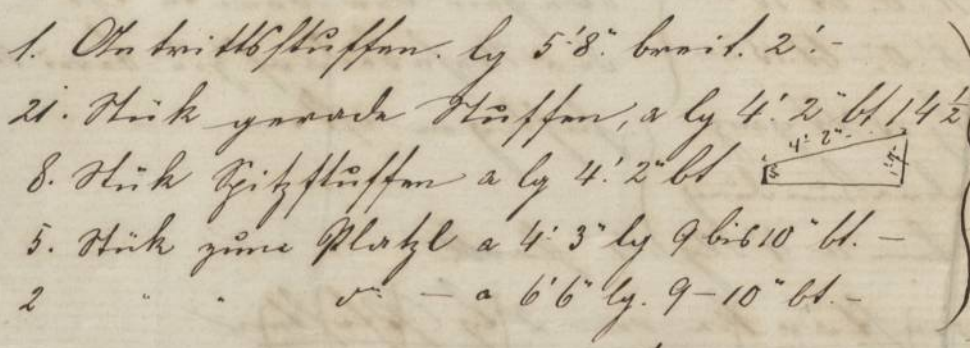 1. Antrittsstuffen. lg 5' 8". breit. 2'. -
21. Stük gerade Stuffen, a lg 4'. 2" bt 14 1/2
8. Stük Spitzstuffen a lg 4'. 2" bt 4' 2"
5. Stük zum Platzl a 4' 3" lg 9 bis 10" bt. -
2 " " do - a 6' 6" lg. 9-10" bt. -